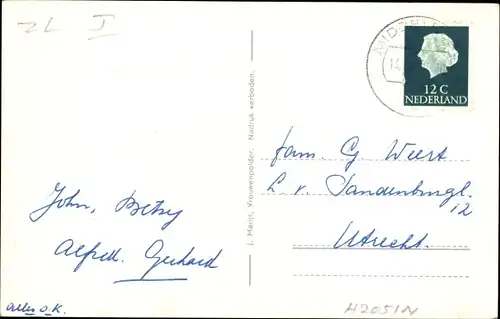 ZL I
MIDDEL
14
12 C
NEDERLAND
J. Marijt, Vrouwenpolder. Nadruk verboden.
Fam. G Weert
L v. Sandenburgl.
12
Utrecht.
John, Betsy
Alfred. Gerhard
alles o.k.
H2051N